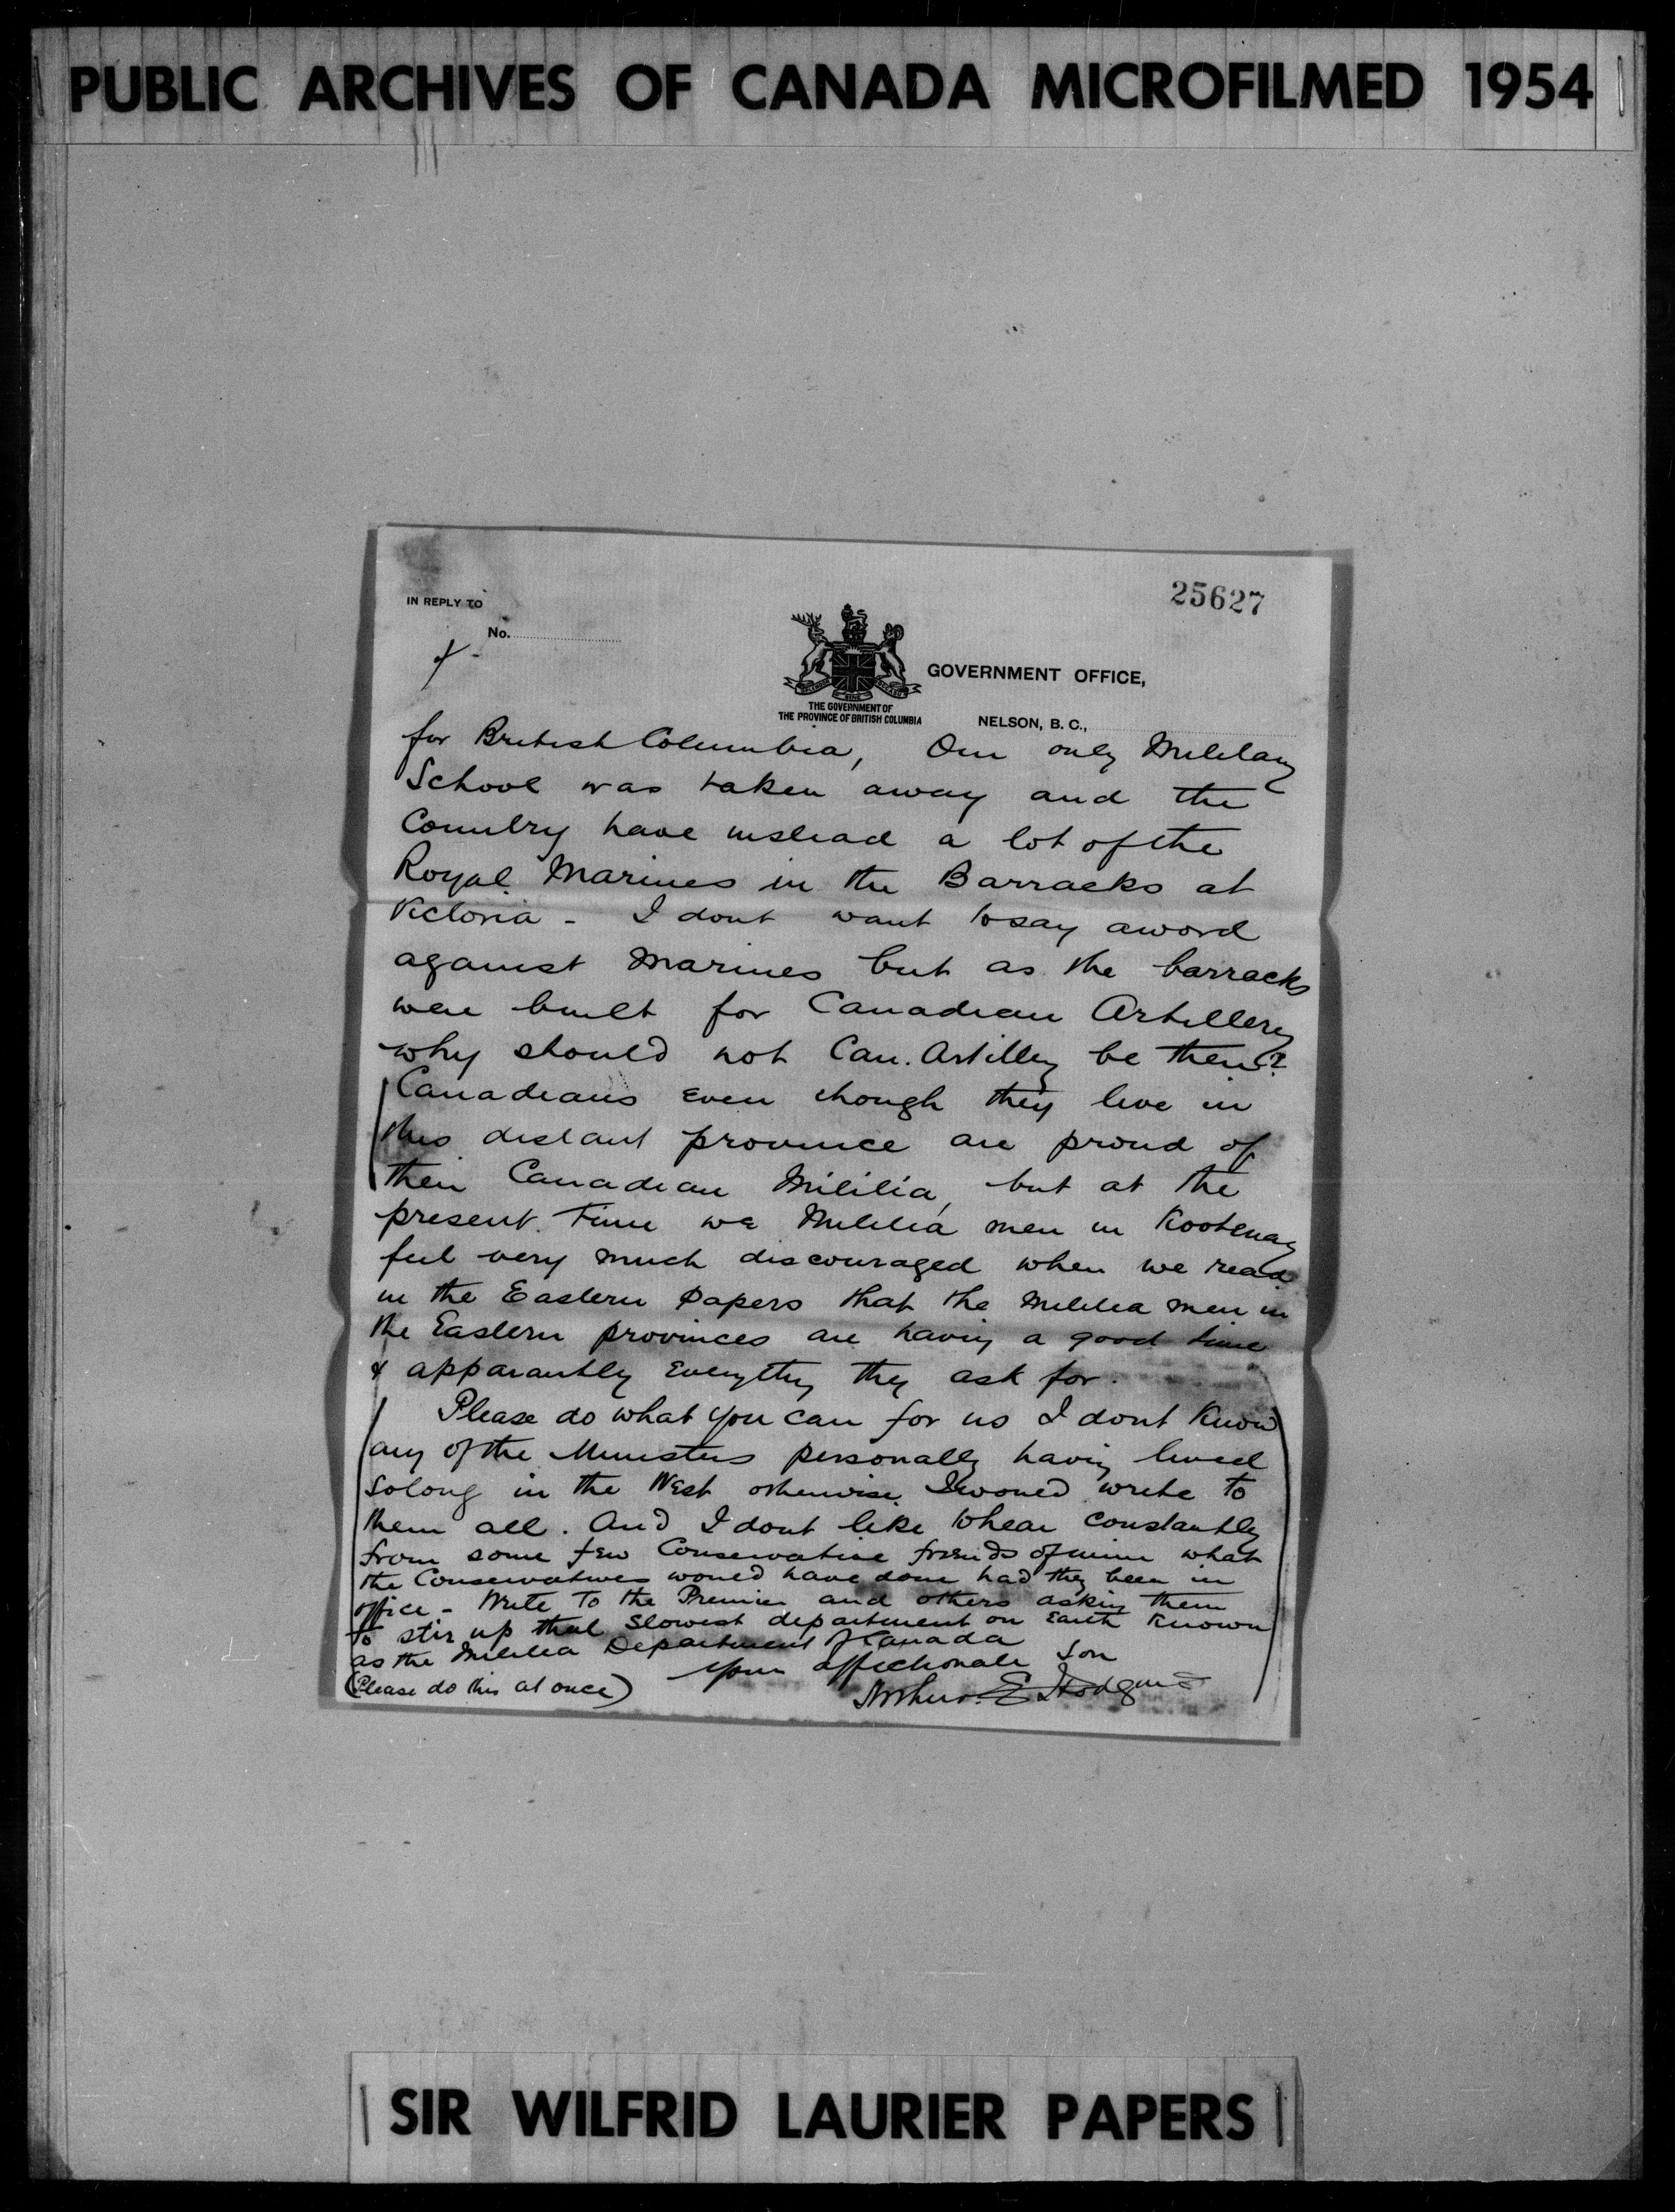 PUBLIC ARCHIVES OF CANADA MICROFILMED 1954
25627
IN REPLY TO
No.
GOVERNMENT OFFICE,
THE GOVERNMENT OF
THE PROVINCE OF BRITISH COLUMBIA
NELSON, B. C.,
for British Columbia, Our only Military
School was taken away and the
Country have instead a lot of the
Royal Marines in the Barracks at
Victoria - I dont want to say a word
against Marines but as the barracks
were built for Canadian Artillery
why should not Can. Artillery be there?
Canadians even though they live in
this distant province are proud of
their Canadian Militia, but at the
present time we Militia men in Kootenay
feel very much discouraged when we read
in the Eastern papers that the Militia men in
the Eastern provinces are having a good time
& apparantly everything they ask for.
Please do what you can for us I dont know
any of the Ministers personally having lived
so long in the West otherwise I would write to
them all. And I dont like to hear constantly
from some few Conservative friends of mine what
the Conservatives would have done had they been in
office - Write to the Premier and others asking them
to stir up that slowest department on Earth known
as the Militia Department of Canada
Your affectionate Son
(Please do this at once)
Arthur E Hodgins
SIR WILFRID LAURIER PAPERS